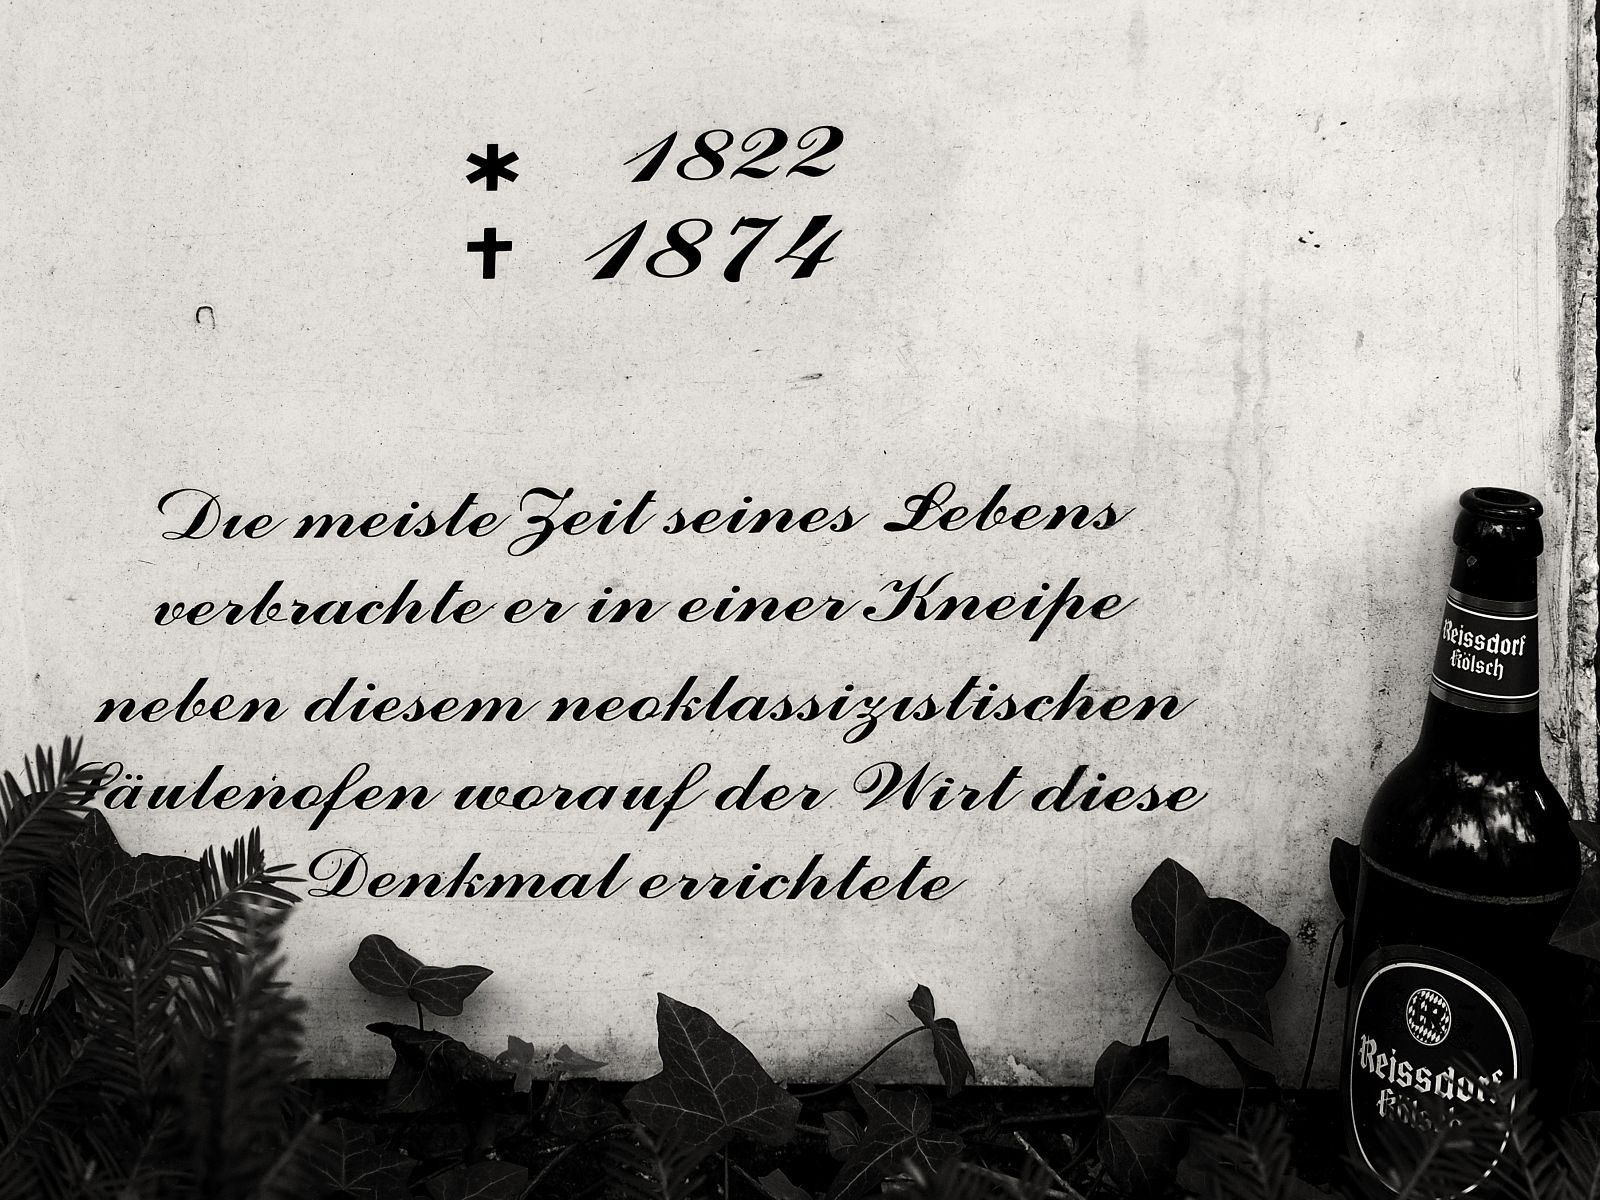 * 1822
† 1874
Die meiste Zeit seines Lebens
verbrachte er in einer Kneipe
neben diesem neoklassizistischen
Säulenofen worauf der Wirt diese
Denkmal errichtete
Reissdorf
Kölsch
Reissdorf
Kölsch